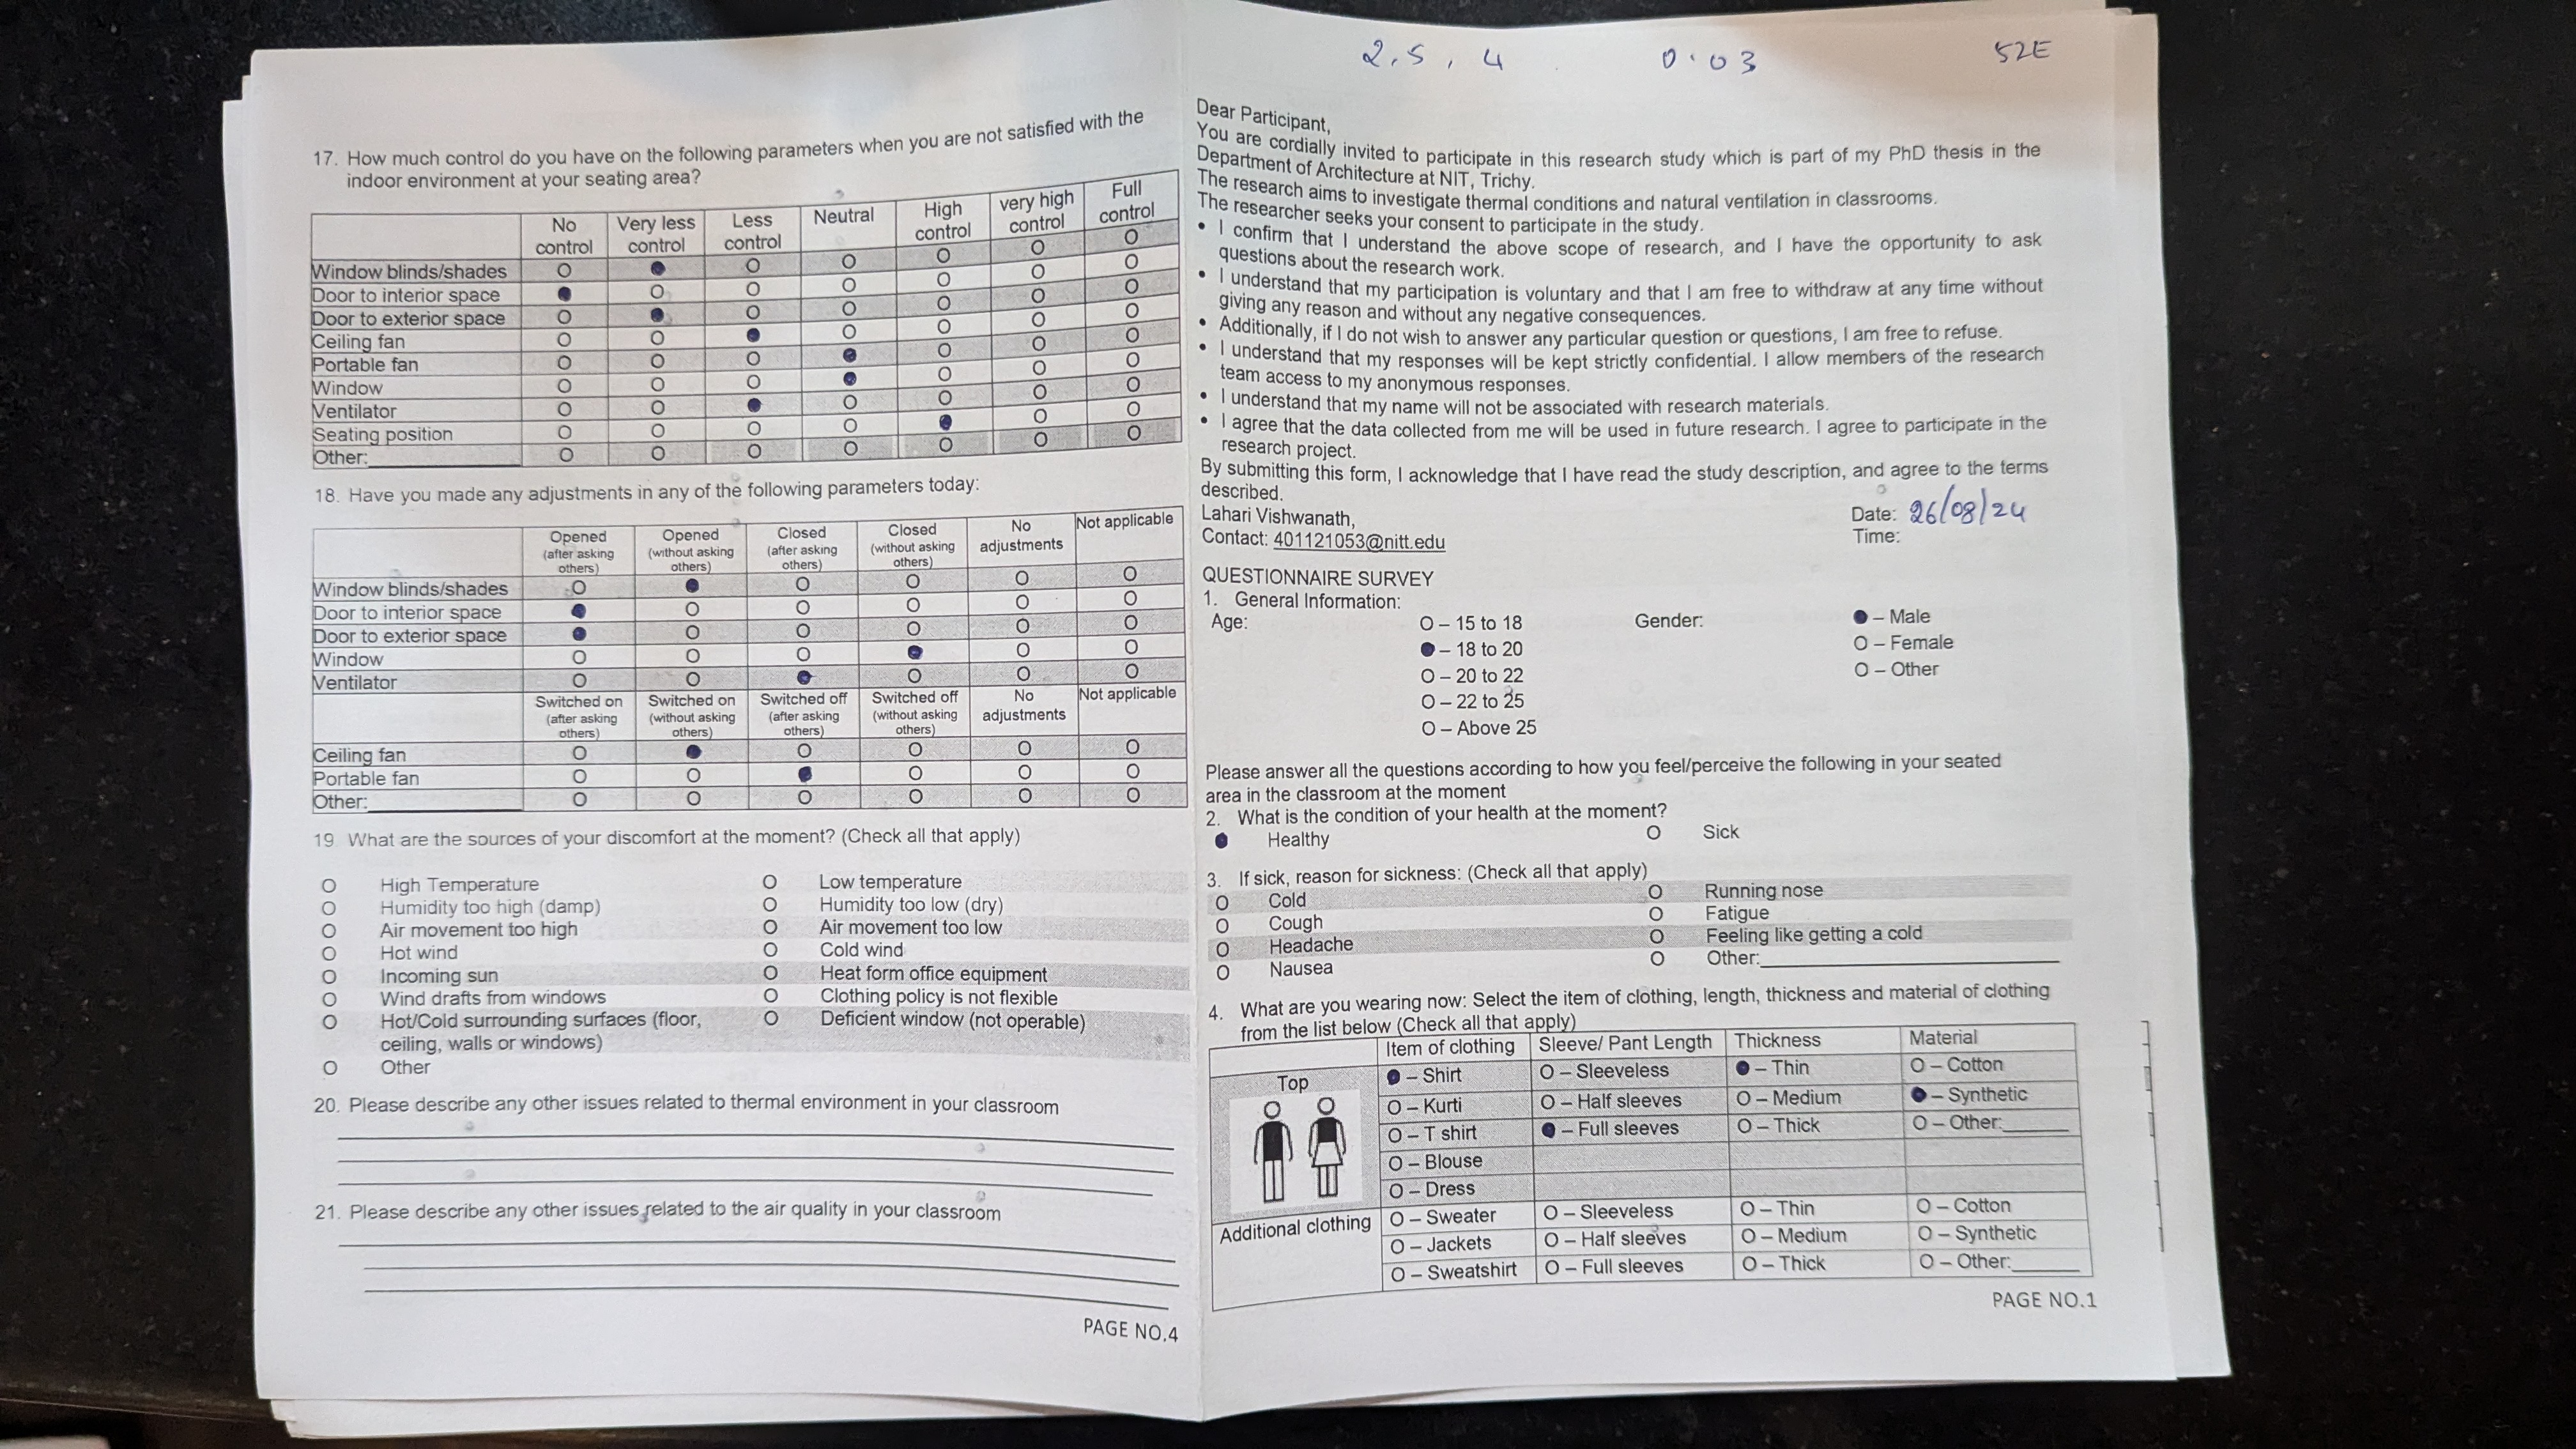 17. How much control do you have on the following parameters when you are not satisfied with the
indoor environment at your seating area?
No control Very less control Less control Neutral High control very high control Full control
Window blinds/shades O ● O O O O O
Door to interior space ● O O O O O O
Door to exterior space O ● O O O O O
Ceiling fan O O ● O O O O
Portable fan O O O ● O O O
Window O O O ● O O O
Ventilator O O ● O O O O
Seating position O O O O ● O O
Other:__________ O O O O O O O
18. Have you made any adjustments in any of the following parameters today:
Opened (after asking others) Opened (without asking others) Closed (after asking others) Closed (without asking others) No adjustments Not applicable
Window blinds/shades O ● O O O O
Door to interior space ● O O O O O
Door to exterior space ● O O O O O
Window O O O ● O O
Ventilator O O ● O O O
Switched on (after asking others) Switched on (without asking others) Switched off (after asking others) Switched off (without asking others) No adjustments Not applicable
Ceiling fan O ● O O O O
Portable fan O O ● O O O
Other:__________ O O O O O O
19. What are the sources of your discomfort at the moment? (Check all that apply)
O High Temperature O Low temperature
O Humidity too high (damp) O Humidity too low (dry)
O Air movement too high O Air movement too low
O Hot wind O Cold wind
O Incoming sun O Heat form office equipment
O Wind drafts from windows O Clothing policy is not flexible
O Hot/Cold surrounding surfaces (floor, O Deficient window (not operable)
ceiling, walls or windows)
O Other
20. Please describe any other issues related to thermal environment in your classroom
21. Please describe any other issues related to the air quality in your classroom
PAGE NO.4
2.5, 4 0.03 52E
Dear Participant,
You are cordially invited to participate in this research study which is part of my PhD thesis in the
Department of Architecture at NIT, Trichy.
The research aims to investigate thermal conditions and natural ventilation in classrooms.
The researcher seeks your consent to participate in the study.
• I confirm that I understand the above scope of research, and I have the opportunity to ask
questions about the research work.
• I understand that my participation is voluntary and that I am free to withdraw at any time without
giving any reason and without any negative consequences.
• Additionally, if I do not wish to answer any particular question or questions, I am free to refuse.
• I understand that my responses will be kept strictly confidential. I allow members of the research
team access to my anonymous responses.
• I understand that my name will not be associated with research materials.
• I agree that the data collected from me will be used in future research. I agree to participate in the
research project.
By submitting this form, I acknowledge that I have read the study description, and agree to the terms
described.
Lahari Vishwanath, Date: 26/08/24
Contact: 401121053@nitt.edu Time:
QUESTIONNAIRE SURVEY
1. General Information:
Age: O – 15 to 18 Gender: ● – Male
● – 18 to 20 O – Female
O – 20 to 22 O – Other
O – 22 to 25
O – Above 25
Please answer all the questions according to how you feel/perceive the following in your seated
area in the classroom at the moment
2. What is the condition of your health at the moment?
● Healthy O Sick
3. If sick, reason for sickness: (Check all that apply)
O Cold O Running nose
O Cough O Fatigue
O Headache O Feeling like getting a cold
O Nausea O Other:__________
4. What are you wearing now: Select the item of clothing, length, thickness and material of clothing
from the list below (Check all that apply)
Item of clothing Sleeve/ Pant Length Thickness Material
Top ● – Shirt O – Sleeveless ● – Thin O – Cotton
O – Kurti O – Half sleeves O – Medium ● – Synthetic
O – T shirt ● – Full sleeves O – Thick O – Other:______
O – Blouse
O – Dress
Additional clothing O – Sweater O – Sleeveless O – Thin O – Cotton
O – Jackets O – Half sleeves O – Medium O – Synthetic
O – Sweatshirt O – Full sleeves O – Thick O – Other:______
PAGE NO.1